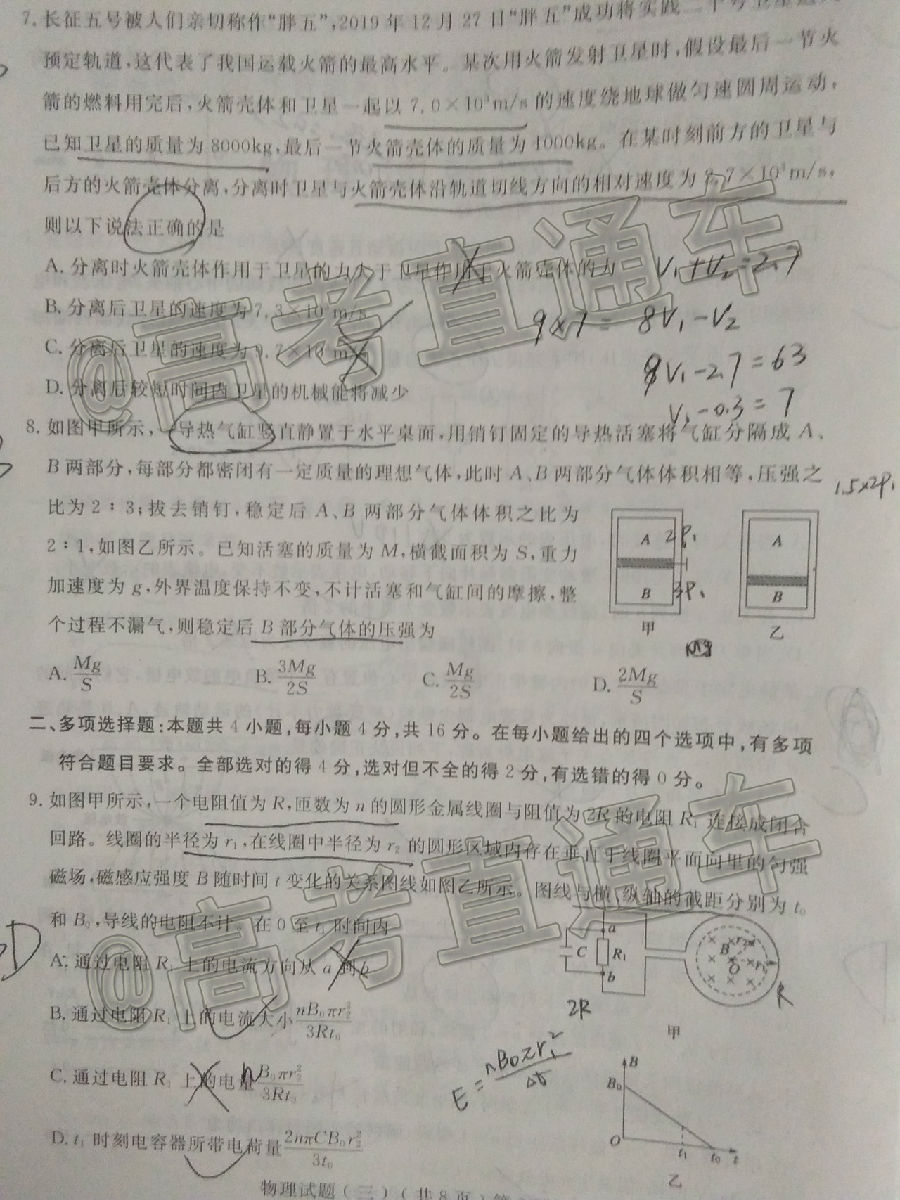 7.长征五号被人们亲切称作“胖五”,2019年12月27日“胖五”成功将实践二十号卫星送入
预定轨道,这代表了我国运载火箭的最高水平。某次用火箭发射卫星时,假设最后一节火
箭的燃料用完后,火箭壳体和卫星一起以7.0×10³m/s的速度绕地球做匀速圆周运动,
已知卫星的质量为8000kg,最后一节火箭壳体的质量为1000kg。在某时刻前方的卫星与
后方的火箭壳体分离,分离时卫星与火箭壳体沿轨道切线方向的相对速度为2.7×10³m/s,
则以下说法正确的是
A.分离时火箭壳体作用于卫星的力大于卫星作用于火箭壳体的力
V₁+V₂=2.7
B.分离后卫星的速度为7.3×10³m/s
9×7=8V₁-V₂
C.分离后卫星的速度为9.7×10³m/s
9V₁-2.7=63
D.分离后较短时间内卫星的机械能将减少
V₁-0.3=7
8.如图甲所示,一导热气缸竖直静置于水平桌面,用销钉固定的导热活塞将气缸分隔成A、
B两部分,每部分都密闭有一定质量的理想气体,此时A、B两部分气体体积相等,压强之
1.5×2P₁
比为2∶3;拔去销钉,稳定后A、B两部分气体体积之比为
2∶1,如图乙所示。已知活塞的质量为M,横截面积为S,重力
加速度为g,外界温度保持不变,不计活塞和气缸间的摩擦,整
个过程不漏气,则稳定后B部分气体的压强为
A 2P₁
B 3P₁
甲
A
B
乙
Mg
A.Mg/S B.3Mg/2S C.Mg/2S D.2Mg/S
二、多项选择题:本题共4小题,每小题4分,共16分。在每小题给出的四个选项中,有多项
符合题目要求。全部选对的得4分,选对但不全的得2分,有选错的得0分。
9.如图甲所示,一个电阻值为R,匝数为n的圆形金属线圈与阻值为2R的电阻R₁连接成闭合
回路。线圈的半径为r₁,在线圈中半径为r₂的圆形区域内存在垂直于线圈平面向里的匀强
磁场,磁感应强度B随时间t变化的关系图线如图乙所示。图线与横、纵轴的截距分别为t₀
和B₀,导线的电阻不计。在0至t₁时间内
A.通过电阻R₁上的电流方向从a到b
B.通过电阻R₁上的电流大小nB₀πr₂²/3Rt₀
C.通过电阻R₁上的电量B₀πr₂²/3Rt₀
n
D.t₁时刻电容器所带电荷量2nπCB₀r₂²/3t₀
a
C R₁
b
B r₂
O
2R
R
甲
E=nB₀πr₂²/Δt
B
B₀
O t₁ t₀ t
乙
物理试题(三)(共8页)第
@高考直通车
@高考直通车